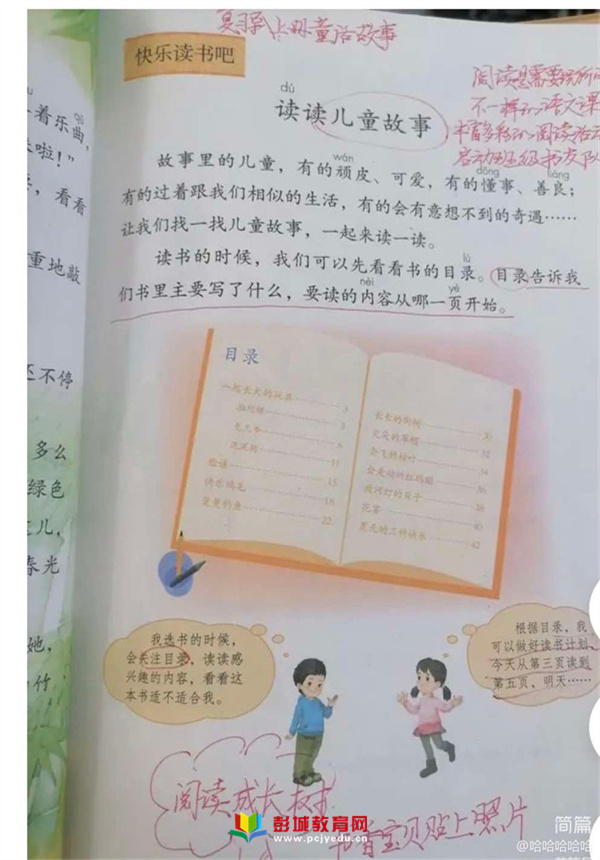 上册童话故事
快乐读书吧
阅读
不一样的语文课
丰富多彩的阅读活动
启动班级书友队
dú
读读儿童故事
wán dǒng liáng
故事里的儿童，有的顽皮、可爱，有的懂事、善良；
有的过着跟我们相似的生活，有的会有意想不到的奇遇……
让我们找一找儿童故事，一起来读一读。
lù
读书的时候，我们可以先看看书的目录。目录告诉我
nèi yè
们书里主要写了什么，要读的内容从哪一页开始。
着乐曲，
啦！”
看看
重地敲
还不停
多么
绿色
儿，
春光
她，
竹
目录
一起长大的玩具
3
5
6
泥泥狗
11
15
快乐鸽笼
18
22
长长的街树
30
32
会飞的
34
会走动的
36
放河灯的日子
38
花窖
40
夏天的三种快乐
42
我选书的时候，
会关注目录，读读感
兴趣的内容，看看这
本书适不适合我。
根据目录，我
可以做好读书计划，
今天从第三页读到
第五页，明天……
阅读成长树
宝贝贴上照片
彭城教育网
www.pcjyedu.cn
简篇
@哈哈哈哈哈